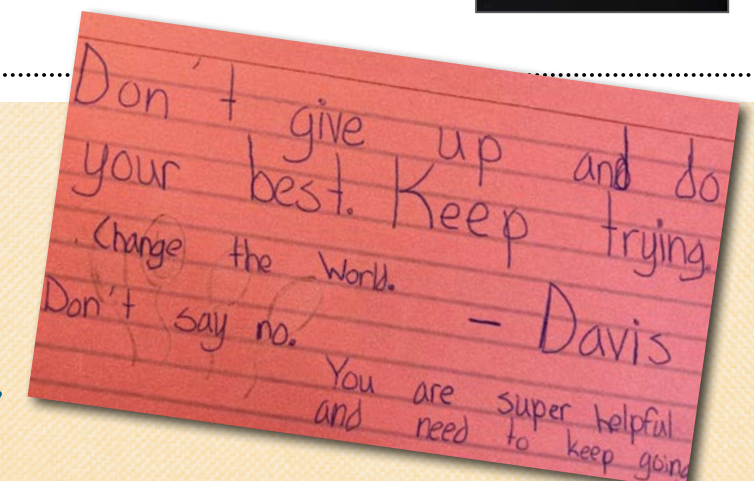 Don't give up and do
your best. Keep trying.
Change the World.
Don't say no. - Davis
You are super helpful
and need to keep going